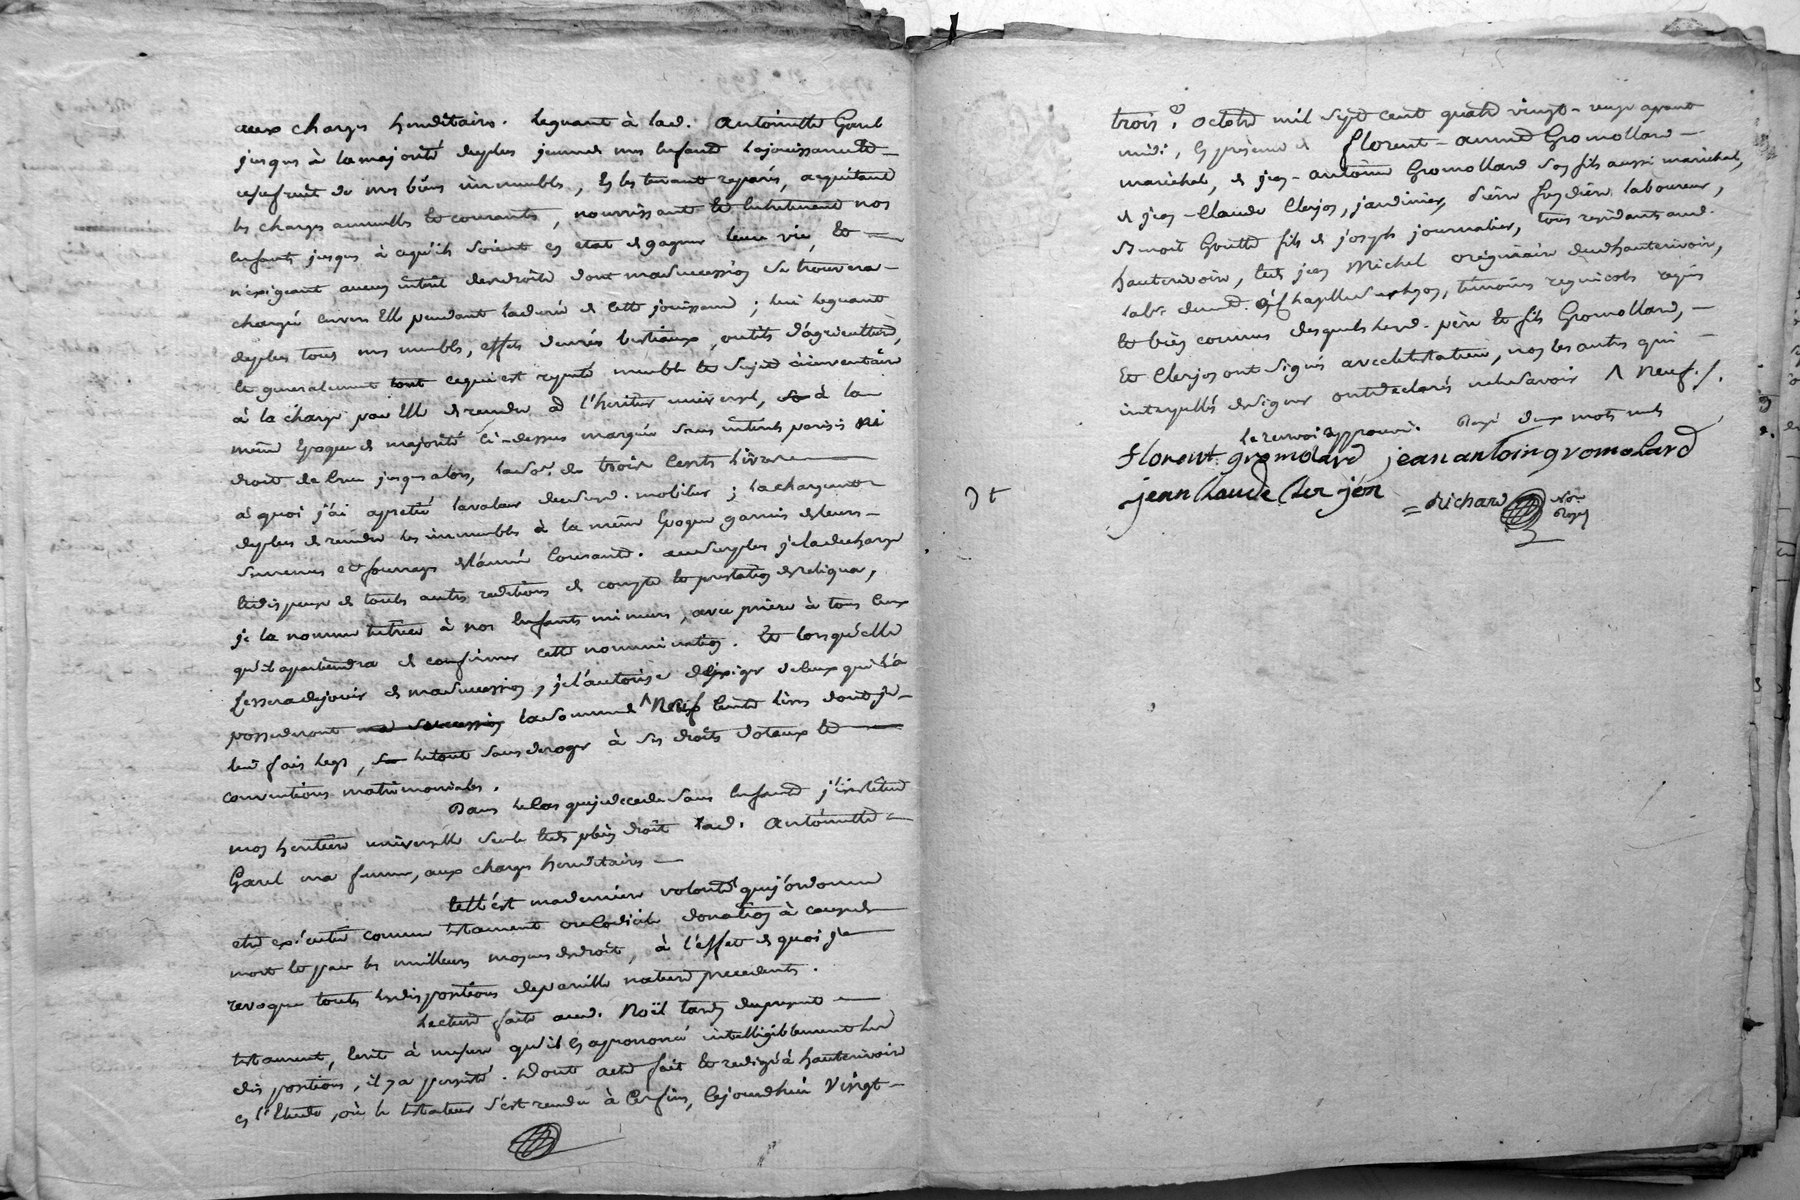 aux charges hereditaires. Leguant à lad. Antoinette Garel
jusques à la majorité duplus jeune de mes Enfants la jouissance et
usufruit de mes biens immeubles, En les tenant reparés, acquitant
les charges annuelles et courants, nourrissant et Entretenant nos
Enfants jusques à cequ'ils soient en etat de gagner leur vie, Et
n'exigeant aucun intérêt desdroits dont masuccession se trouvera
chargée Envers Elle pendant ladurée de cette jouissance ; lui Leguant
deplus tous mes meubles, effets denrées bestiaux, outils d'agriculture,
Et generalement tout cequi est reputé meuble Et Sujet à inventaire
à la charge par Elle de rendre à l'heritier universel, à la
même Epoque de majorité ci-dessus marquée Sans intérêts parisis ni
droit de Crue jusques alors, lasoe. de trois Cents Livres
à quoi j'ai apretié lavaleur dud. mobilier ; La chargeant
deplus de rendre les immeubles à la même Epoque garnis deleurs
Semences et fourrages del'année Courante. ausurplus je la decharge
Et dispense de toutes autres redditions de compte Et prestation de reliqua,
je la nomme tutrice à nos Enfants mineurs, avec prière à tous Ceux
qu'il apartiendra de confirmer cette nomination. Et lorsqu'elle
Cessera dejouir de masuccession, je l'autorise d'Exiger deCeux qui La
possederont ma succession lasomme de ^ Neuf Cents Livres dont je
lui fais Legs, Letout sans deroger à ses droits dotaux Et
conventions matrimoniales.
Dans LeCas queje decede sans Enfants j'institue
mon heritière universelle Seule Et de plein droit lad. Antoinette
Garel ma femme, aux charges hereditaires
telle est maderniere volonté que j'ordonne
etre exécutée comme testament ou Codicile donation à cause de
mort Et par les meilleurs moyens dedroit, à l'effet de quoi je
revoque toutes les dispositions depareille nature precedentes.
Lecture faite aud. Noël tardy du present
testament, Ecrit à mesure qu'il En a prononcé intelligiblement les
dispositions, il y a persisté. Dont acte fait Et redigé à hauterivoire
En l'Etude, où le testateur s'est rendu à Ces fins, Cejourdhui Vingt-
trois 8 octobre mil sept cent quatre vingt-onze avant
midi, En présence de florent-aimé Gromollard
maréchal, de jean-antoine Gromollard son fils aussi maréchal,
de jean-Claude Clerjon, jardinier, laboureur,
Benoit Goutte fils de joseph journalier, tous residants aud.
hauterivoire, Et de jean Michel originaire dud hauterivoire,
témoins requis
Et bien connus desquels Lesd. père Et fils Gromollard,
Et Clerjon ont signés avec letestateur, non les autres qui
interpellés de signer ont declarés ne le savoir ^ neuf./.
Le renvoi approuvé. Rayé deux mots nuls
florent gromolard jean antoin gromolard
jean Claude Clerjon = Richard Nore
Royal